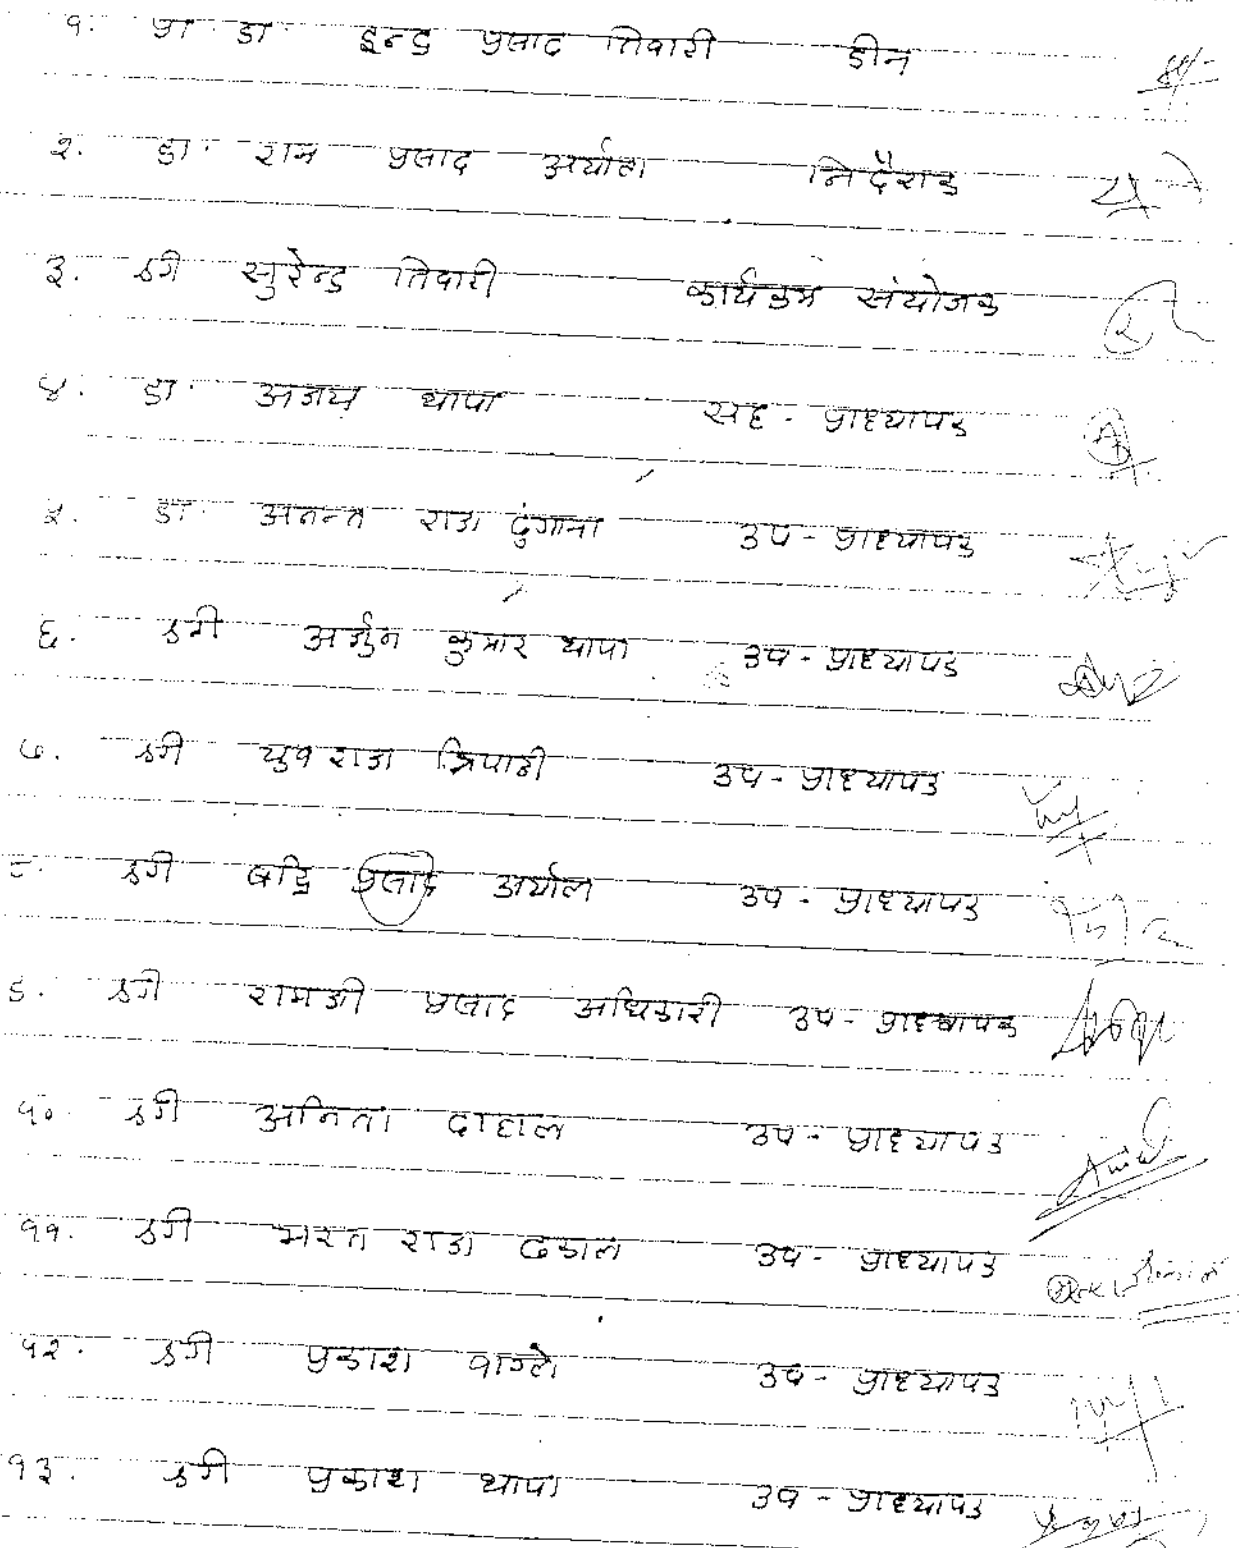 १. प्रा डा. इन्दु प्रसाद तिवारी डीन
२. डा. राम प्रसाद अर्याल निर्देशक
३. श्री सुरेन्द्र तिवारी कार्यक्रम संयोजक
४. डा. अजय थापा सह-प्राध्यापक
५. डा. अनन्त राज ढुंगाना उप-प्राध्यापक
६. श्री अर्जुन कुमार थापा उप-प्राध्यापक
७. श्री युव राज त्रिपाठी उप-प्राध्यापक
८. श्री बद्रि प्रसाद अर्याल उप-प्राध्यापक
९. श्री रामजी प्रसाद अधिकारी उप-प्राध्यापक
१०. श्री अनिता दाहाल उप-प्राध्यापक
११. श्री भरत राज ढकाल उप-प्राध्यापक
१२. श्री प्रकाश वाग्ले उप-प्राध्यापक
१३. श्री प्रकाश थापा उप-प्राध्यापक